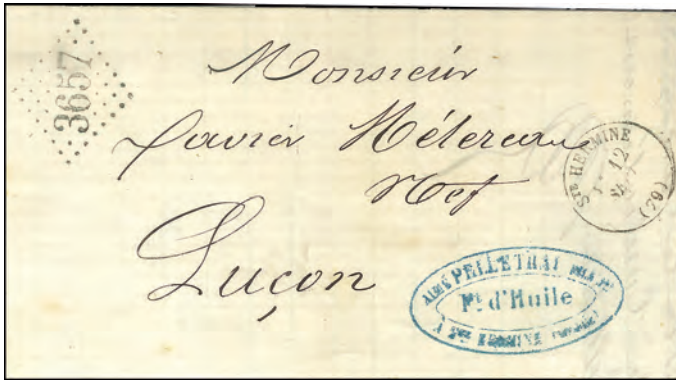 3657
Monsieur
Xavier Métereau
Nég
Luçon
STE HERMINE
12
(79)
AIMÉ PELLETRAI
Mt d'Huile
A STE HERMINE